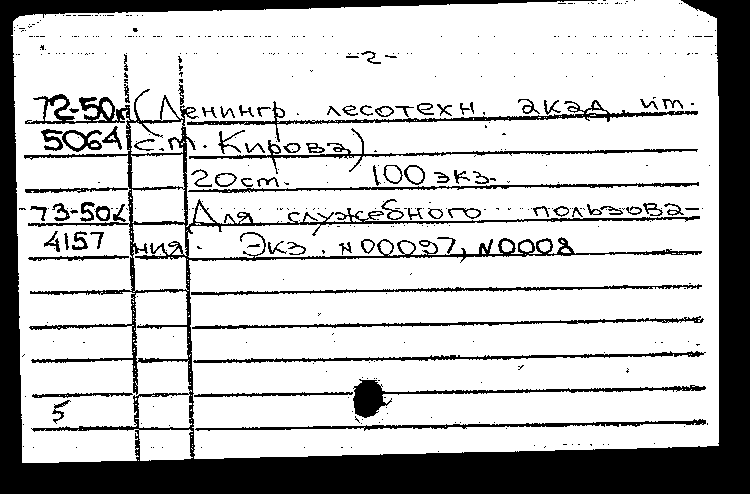 -2-
72-50к (Ленингр. лесотехн. акад. им.
5064 С.М. Кирова).
20см. 100 экз.
73-50к Для служебного пользова-
4157 ния. Экз. №00097, №0008
5